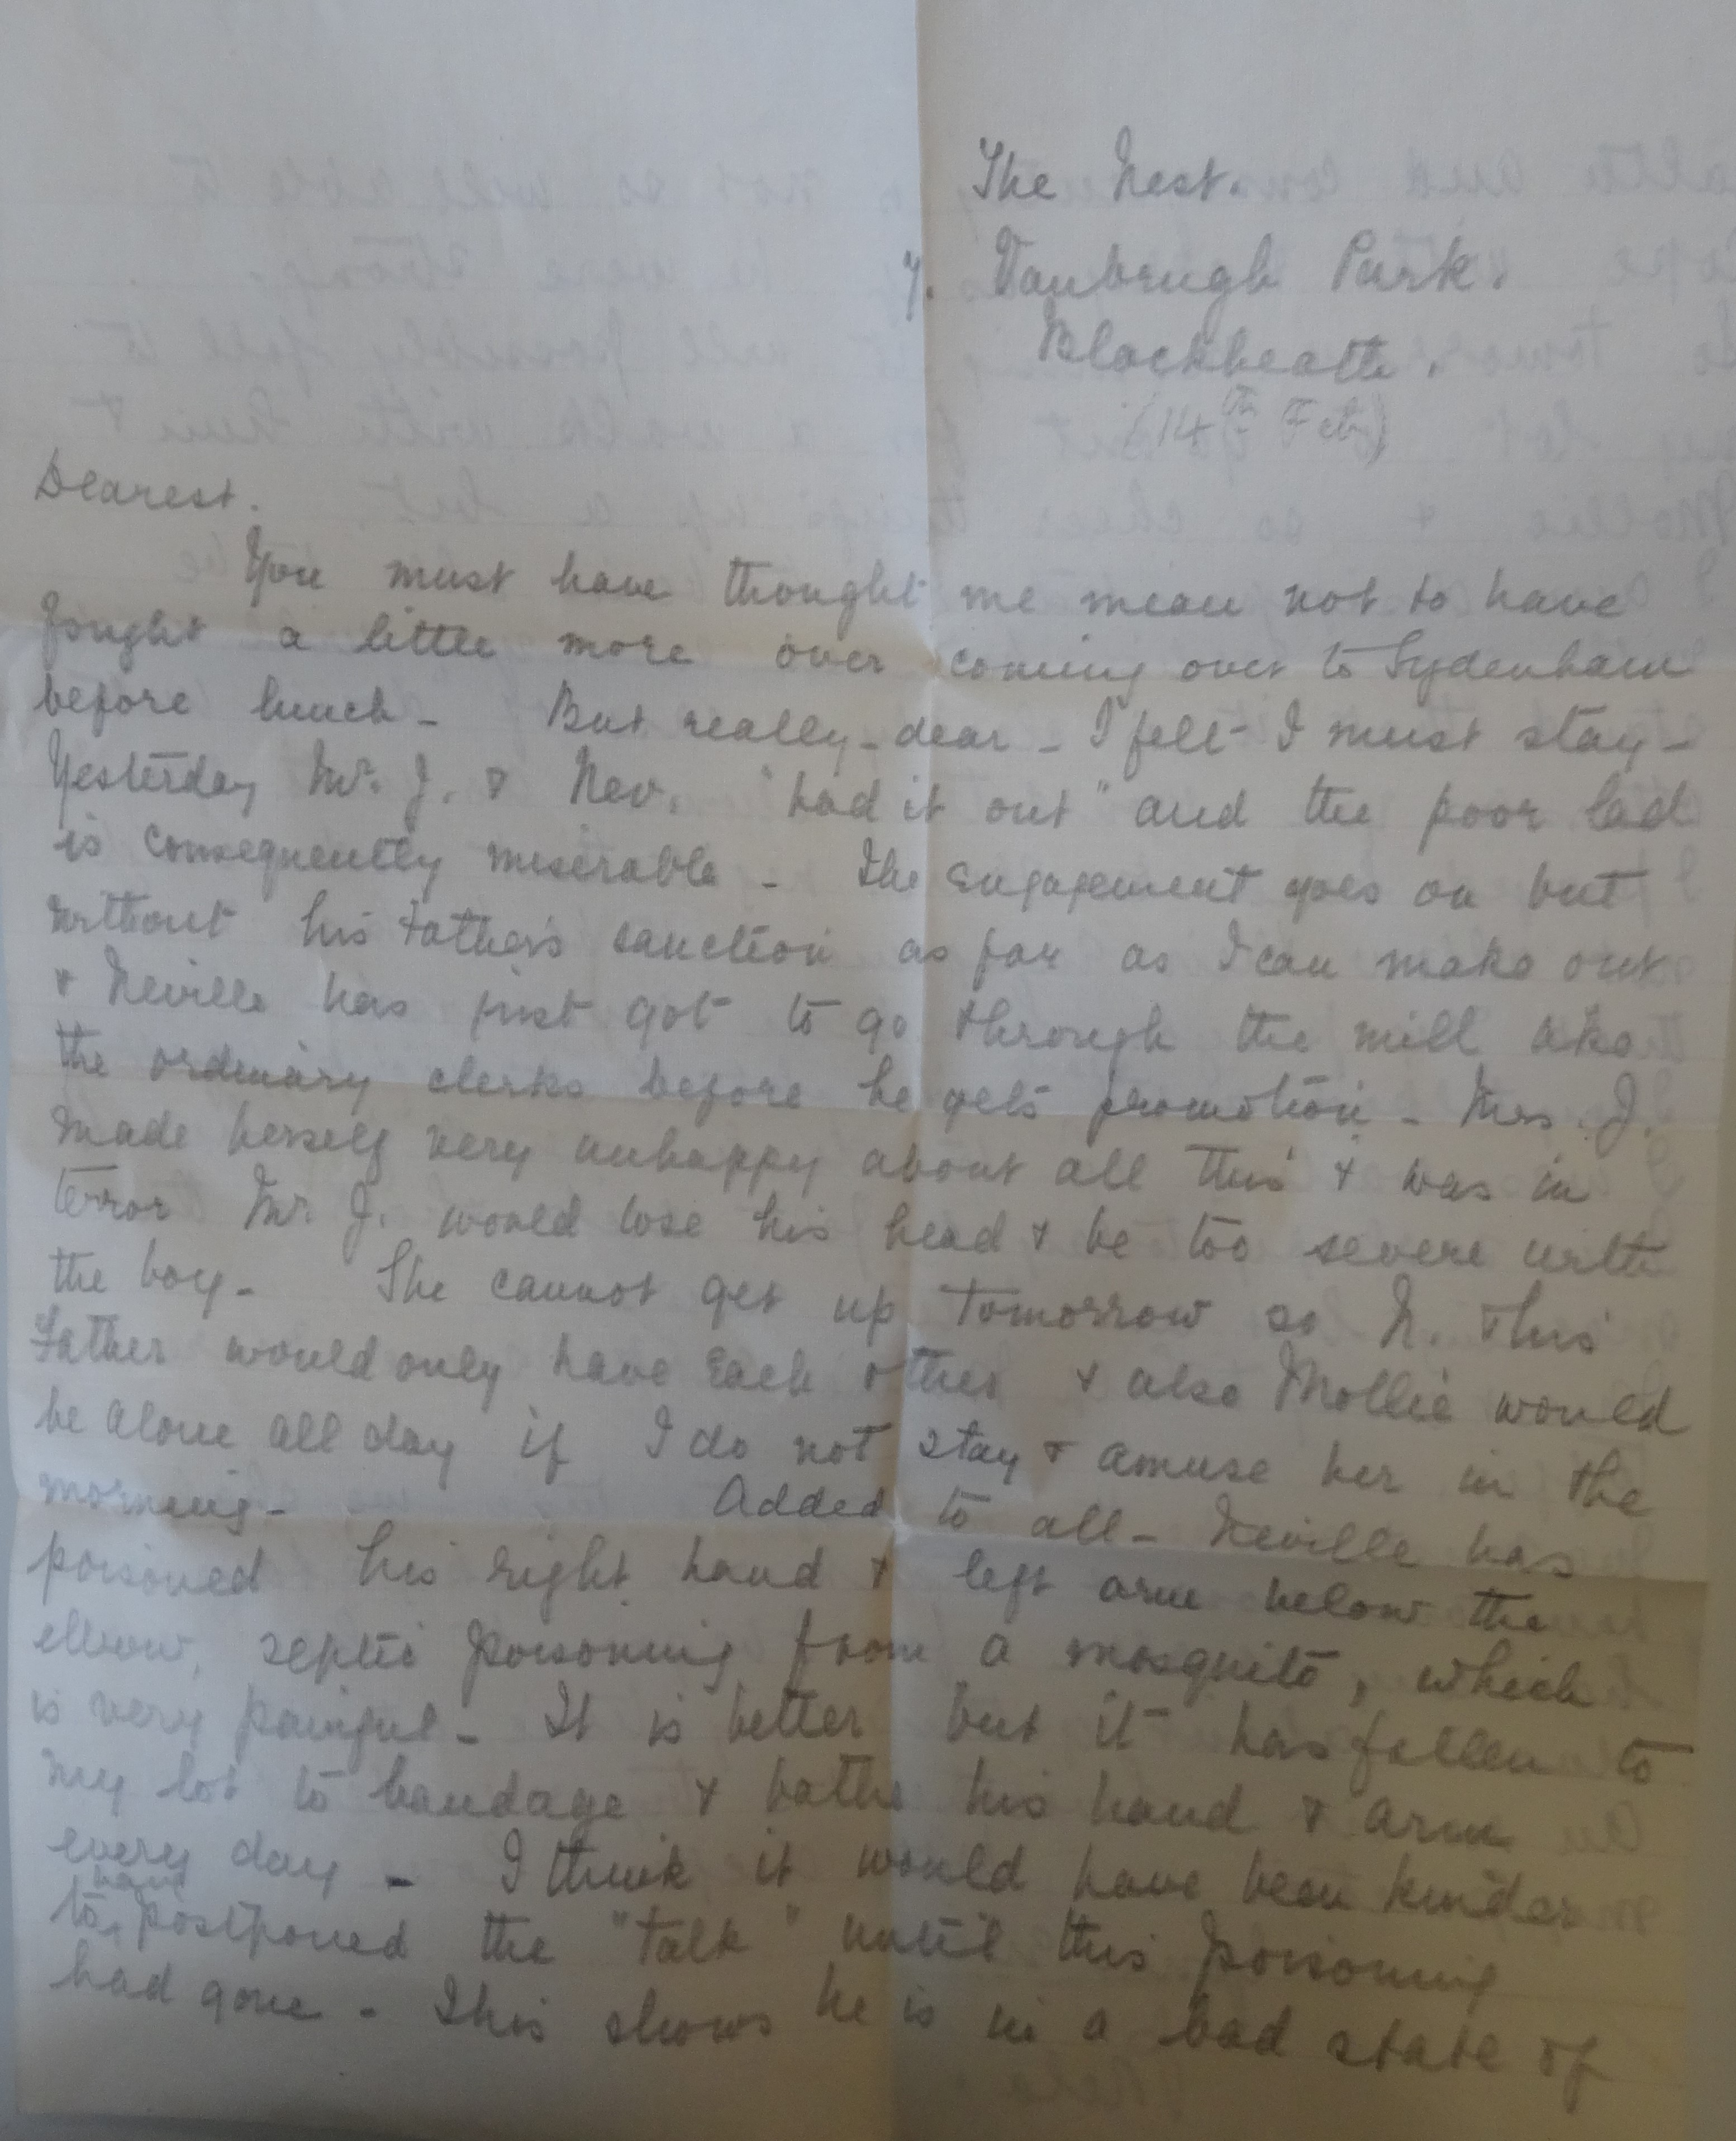 The Nest.
7. Vanbrugh Park.
Blackheath.
(14th Feb)
Dearest.
You must have thought me mean not to have
fought a little more over coming over to Sydenham
before lunch - But really - dear - I felt I must stay -
Yesterday Mr. J. & Nev. "had it out" and the poor lad
is consequently miserable - The Engagement goes on but
without his Father's sanction as far as I can make out
& Neville has just got to go through the mill like
the ordinary clerks before he gets promotion - Mrs. J.
made herself very unhappy about all this & was in
terror Mr. J. would lose his head & be too severe with
the boy - She cannot get up tomorrow so N. & his
Father would only have Each other & also Mollie would
be alone all day if I do not stay & amuse her in the
morning - Added to all - Neville has
poisoned his right hand & left arm below the
elbow, septic poisoning from a mosquito, which
is very painful - It is better but it has fallen to
my lot to bandage & bathe his hand & arm
every day - I think it would have been kinder
to have postponed the "talk" until this poisoning
had gone - This shows he is in a bad state of